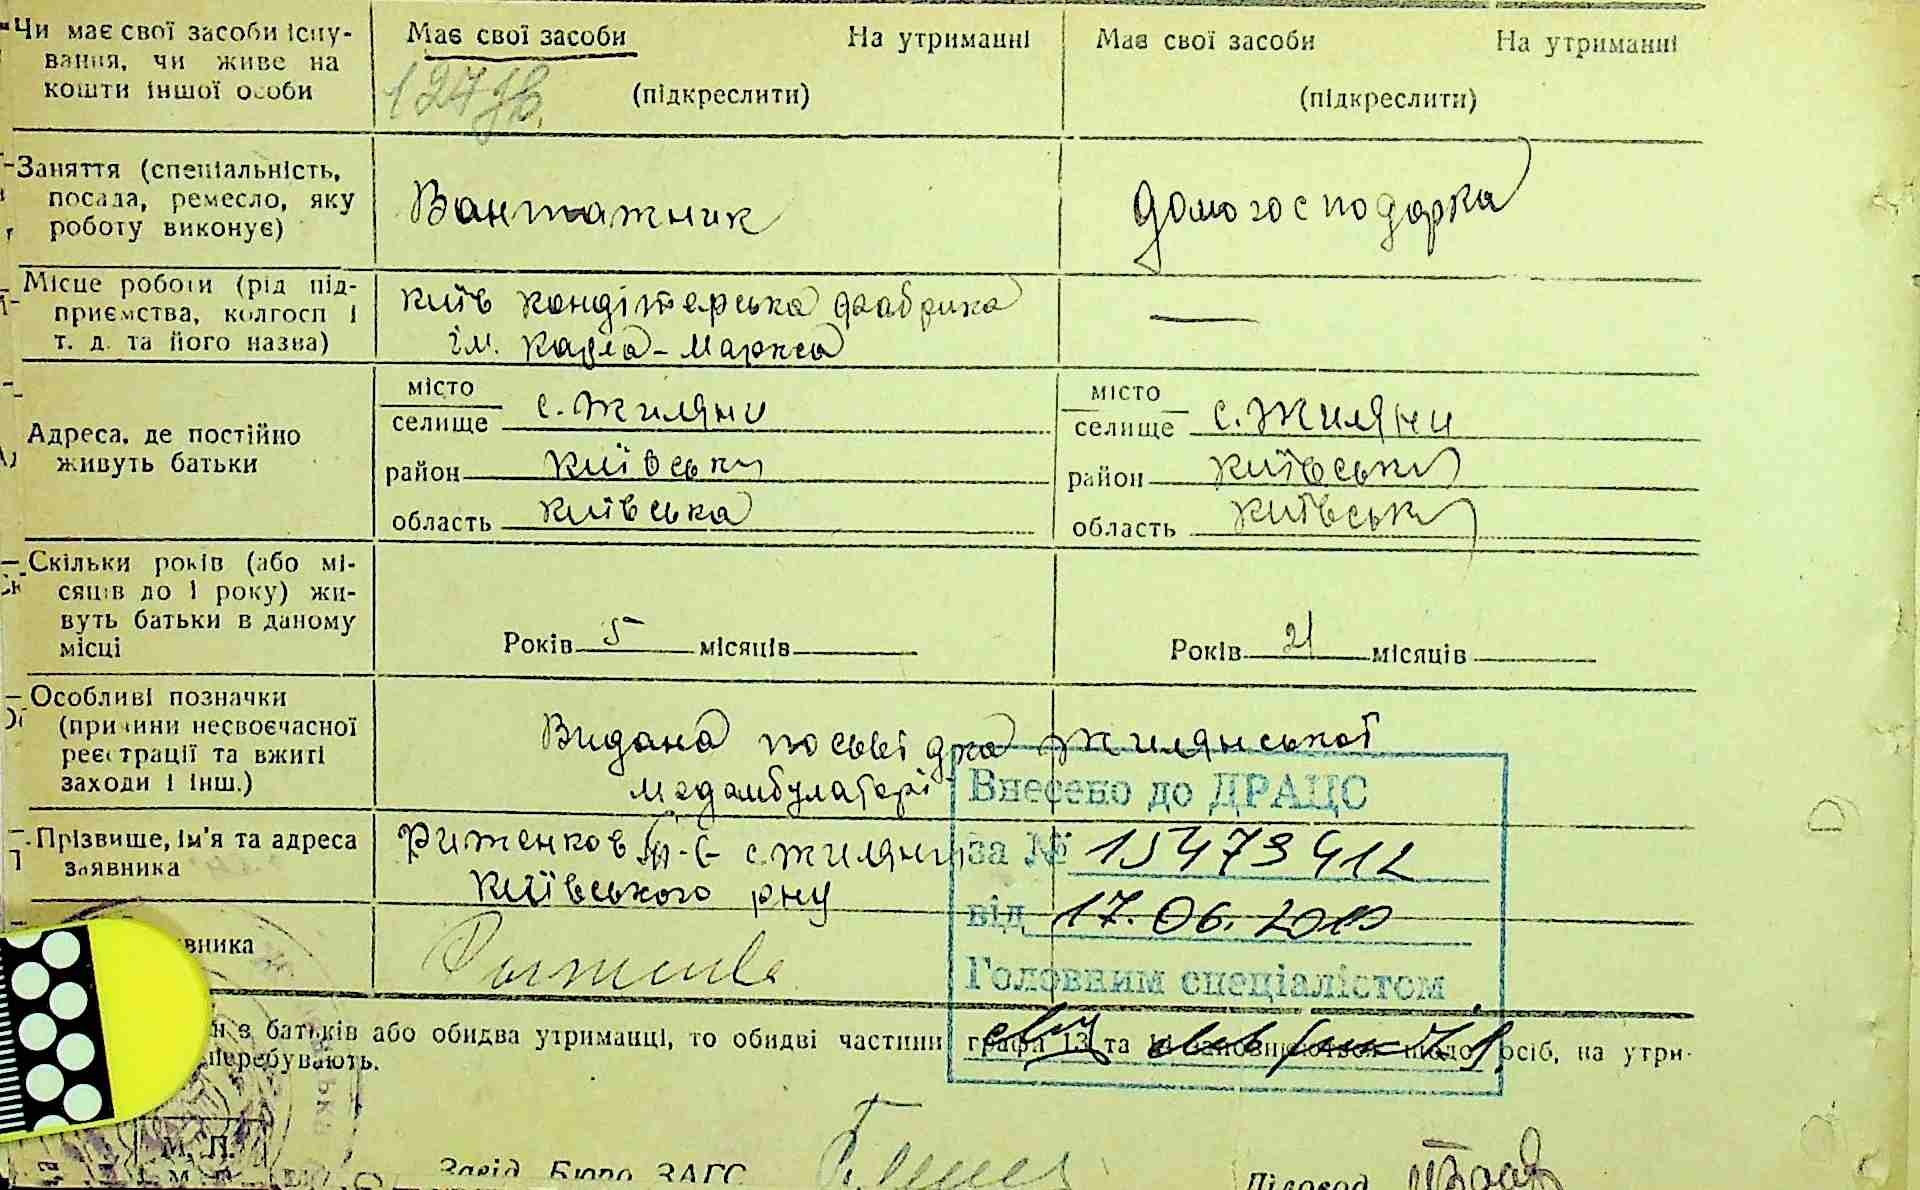 Чи має свої засоби існу-
вання, чи живе на
кошти іншої особи
Має свої засоби На утриманні
(підкреслити)
Має свої засоби На утриманні
(підкреслити)
Заняття (спеціальність,
посада, ремесло, яку
роботу виконує)
Вантажник
домогосподарка
Місце роботи (рід під-
приємства, колгосп і
т. д. та його назва)
Київ кондітерська фабрика
ім. Карла-Маркса
—
Адреса, де постійно
живуть батьки
місто
селище с. Жиляни
район Київськи
область Київська
місто
селище с. Жиляни
район Київськи
область Київськ
Скільки років (або мі-
сяців до 1 року) жи-
вуть батьки в даному
місці
Років 5 місяців
Років 21 місяців
Особливі позначки
(причини несвоєчасної
реєстрації та вжиті
заходи і інш.)
Видана посвідка Жилянської
медамбулаторі
Внесено до ДРАЦС
за № 15473412
від 17.06.2010
Головним спеціалістом
Прізвище, ім'я та адреса
заявника
Риженков с Жиляни
Київського рну
вника
н з батьків або обидва утриманці, то обидві частини графа 13 та осіб, на утри-
перебувають.
М. П.
Завід. Бюро ЗАГС
Діловод